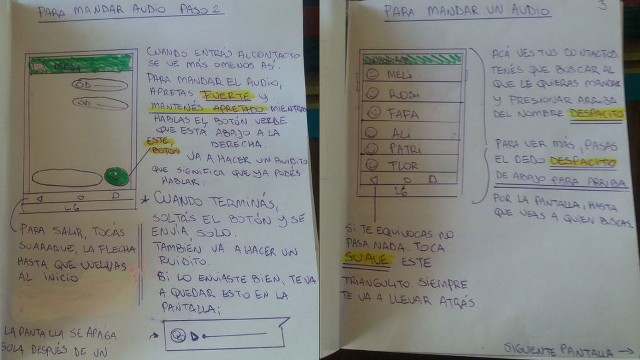 PARA MANDAR AUDIO PASO 2
CUANDO ENTRÁS AL CONTACTO
SE VE MÁS O MENOS ASÍ.
PARA MANDAR EL AUDIO,
APRETAS FUERTE Y
MANTENÉS APRETADO MIENTRAS
HABLAS EL BOTÓN VERDE
QUE ESTÁ ABAJO A LA
DERECHA.
ESTE
BOTÓN
VA A HACER UN RUIDITO
QUE SIGNIFICA QUE YA PODÉS
HABLAR.
LG
* CUANDO TERMINÁS,
SOLTÁS EL BOTÓN Y SE
ENVÍA SOLO.
TAMBIÉN VA A HACER UN
RUIDITO.
SI LO ENVIASTE BIEN, TE VA
A QUEDAR ESTO EN LA
PANTALLA:
PARA SALIR, TOCÁS
SUAAAAUE, LA FLECHA
HASTA QUE VUELVAS
AL INICIO
LA PANTALLA SE APAGA
SOLA DESPUÉS DE UN
PARA MANDAR UN AUDIO
3
MELI
ROSI
FAFA
ALI
PATRI
FLOR
LG
ACÁ VES TUS CONTACTOS.
TENÉS QUE BUSCAR AL
QUE LE QUIERAS MANDAR
Y PRESIONAR ARRIBA
DEL NOMBRE DESPACITO
PARA VER MÁS, PASÁS
EL DEDO DESPACITO
DE ABAJO PARA ARRIBA
POR LA PANTALLA, HASTA
QUE VEAS A QUIEN BUSCÁS.
SI TE EQUIVOCAS NO
PASA NADA. TOCA
SUAVE ESTE
TRIANGULITO. SIEMPRE
TE VA A LLEVAR ATRÁS
SIGUIENTE PANTALLA →